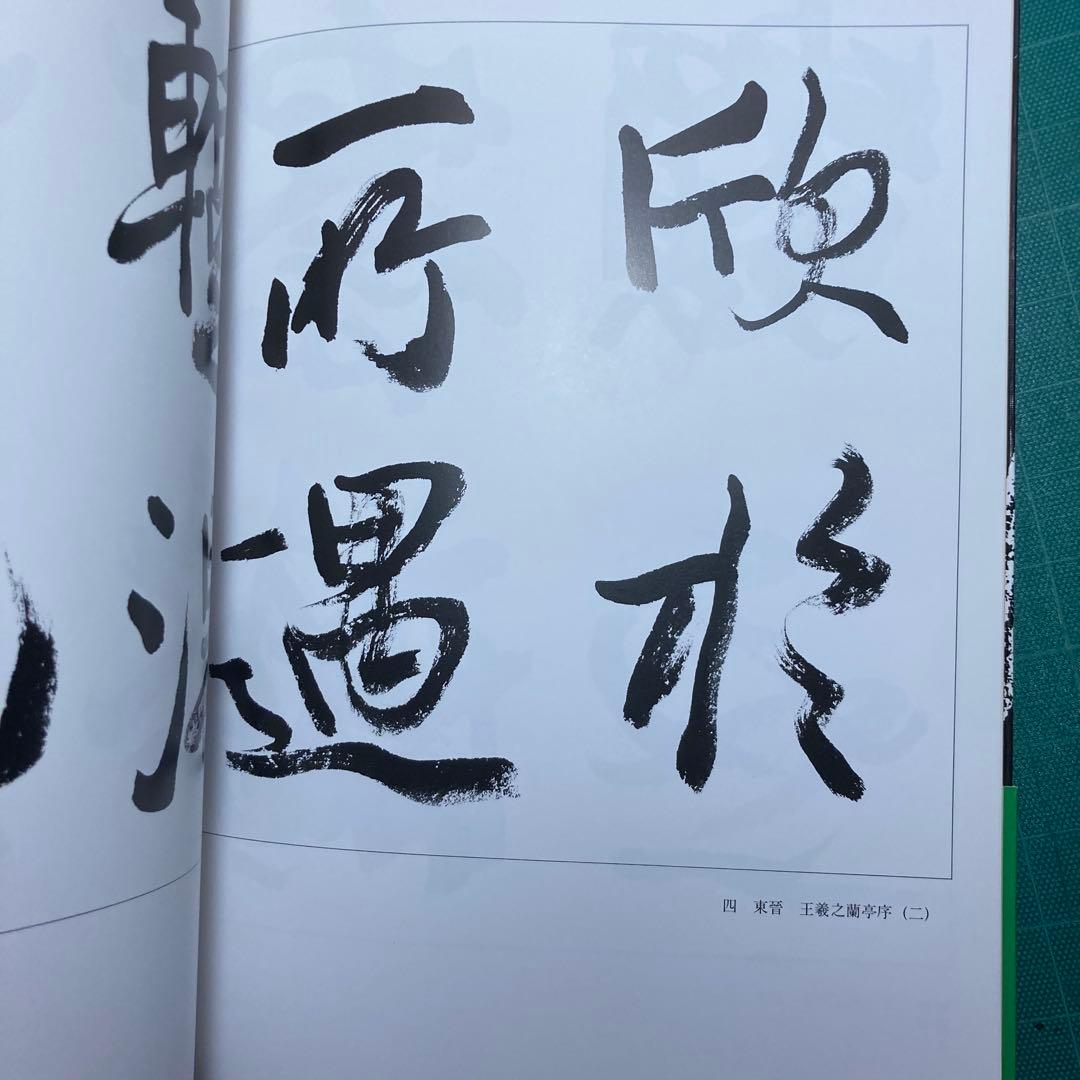 欣於
所遇
四　東晉　王羲之蘭亭序（二）